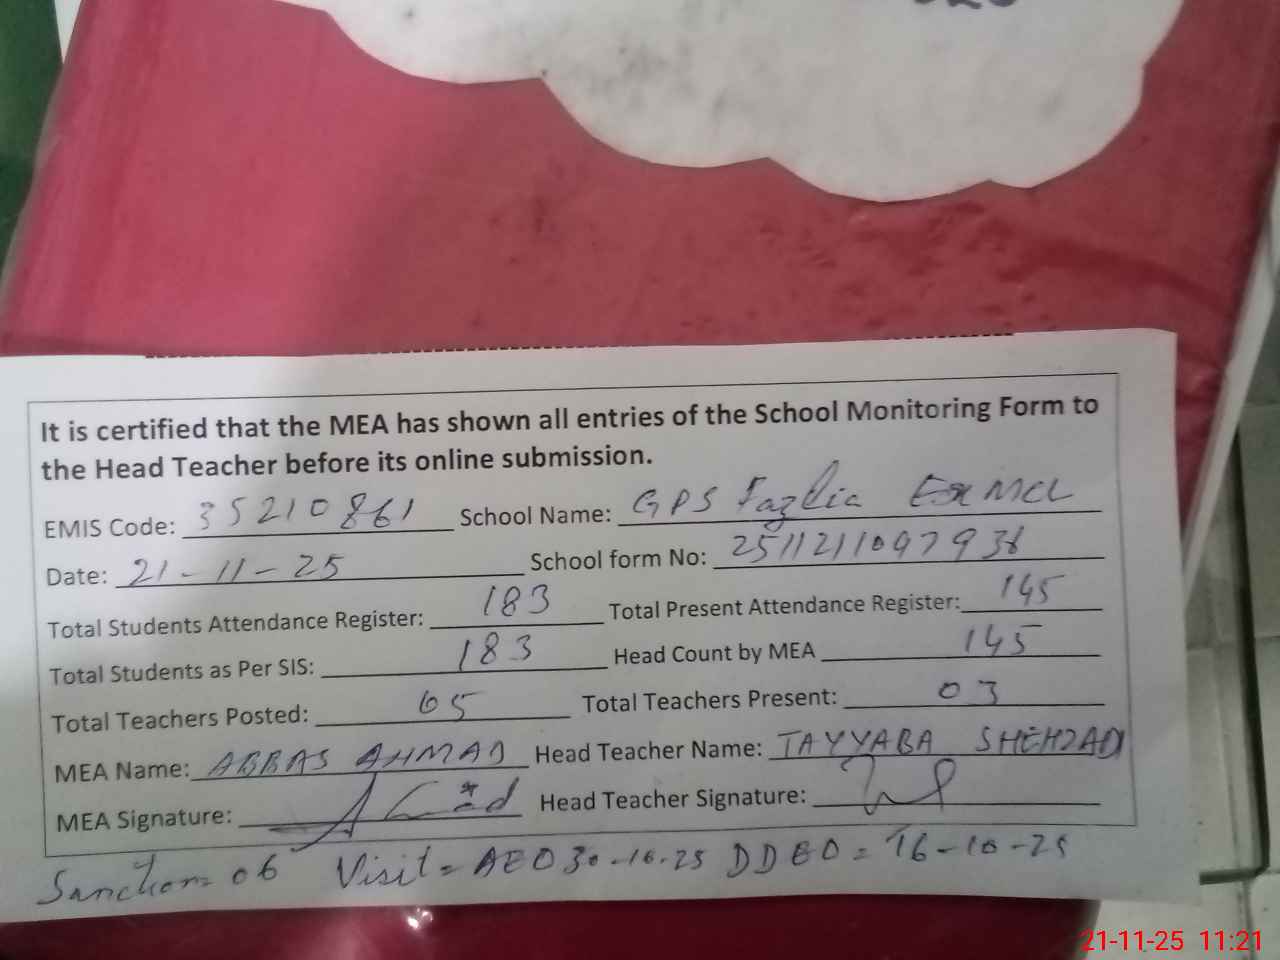 It is certified that the MEA has shown all entries of the School Monitoring Form to
the Head Teacher before its online submission.
EMIS Code: 35210861 School Name: GPS Fazlia Ex MCL
Date: 21-11-25 School form No: 2511211097936
Total Students Attendance Register: 183 Total Present Attendance Register: 145
Total Students as Per SIS: 183 Head Count by MEA 145
Total Teachers Posted: 05 Total Teachers Present: 03
MEA Name: ABBAS AHMAD Head Teacher Name: TAYYABA SHEHZAD
MEA Signature: Head Teacher Signature:
Sanction= 06 Visit= AEO 30-10-25 DDEO= 16-10-25
21-11-25 11:21